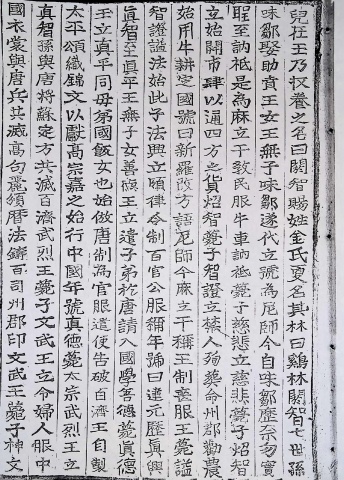 兒在王乃收養之名曰閼智賜姓金氏更名其林曰雞林閼智七世孫
味鄒娶助賁王女王無子味鄒遂代立號為尼師今自味鄒歷奈勿實
聖至訥祗是為麻立干敎民服牛車訥祗薨子慈悲立慈悲薨子炤智
立始開市肆以通四方之貨炤智薨子智證立禁人殉葬命州郡勸農
始用牛耕定國號曰新羅改方語尼師今麻立干稱王制喪服王薨諡
智證諡法始此子法興立頒律令制百官公服稱年號曰建元歷眞興
眞智至眞平王無子女善德王立遣子弟於唐請入國學善德薨眞德
王立真平同母弟國飯女也始倣唐制為官服遣使告破百濟王自製
太平頌織錦文以獻高宗嘉之始行中國年號真德薨太宗武烈王立
真智孫與唐將蘇定方共滅百濟武烈王薨子文武王立令婦人服中
國衣裳與唐兵共滅高句麗頒曆法鑄百司州郡印文武王薨子神文